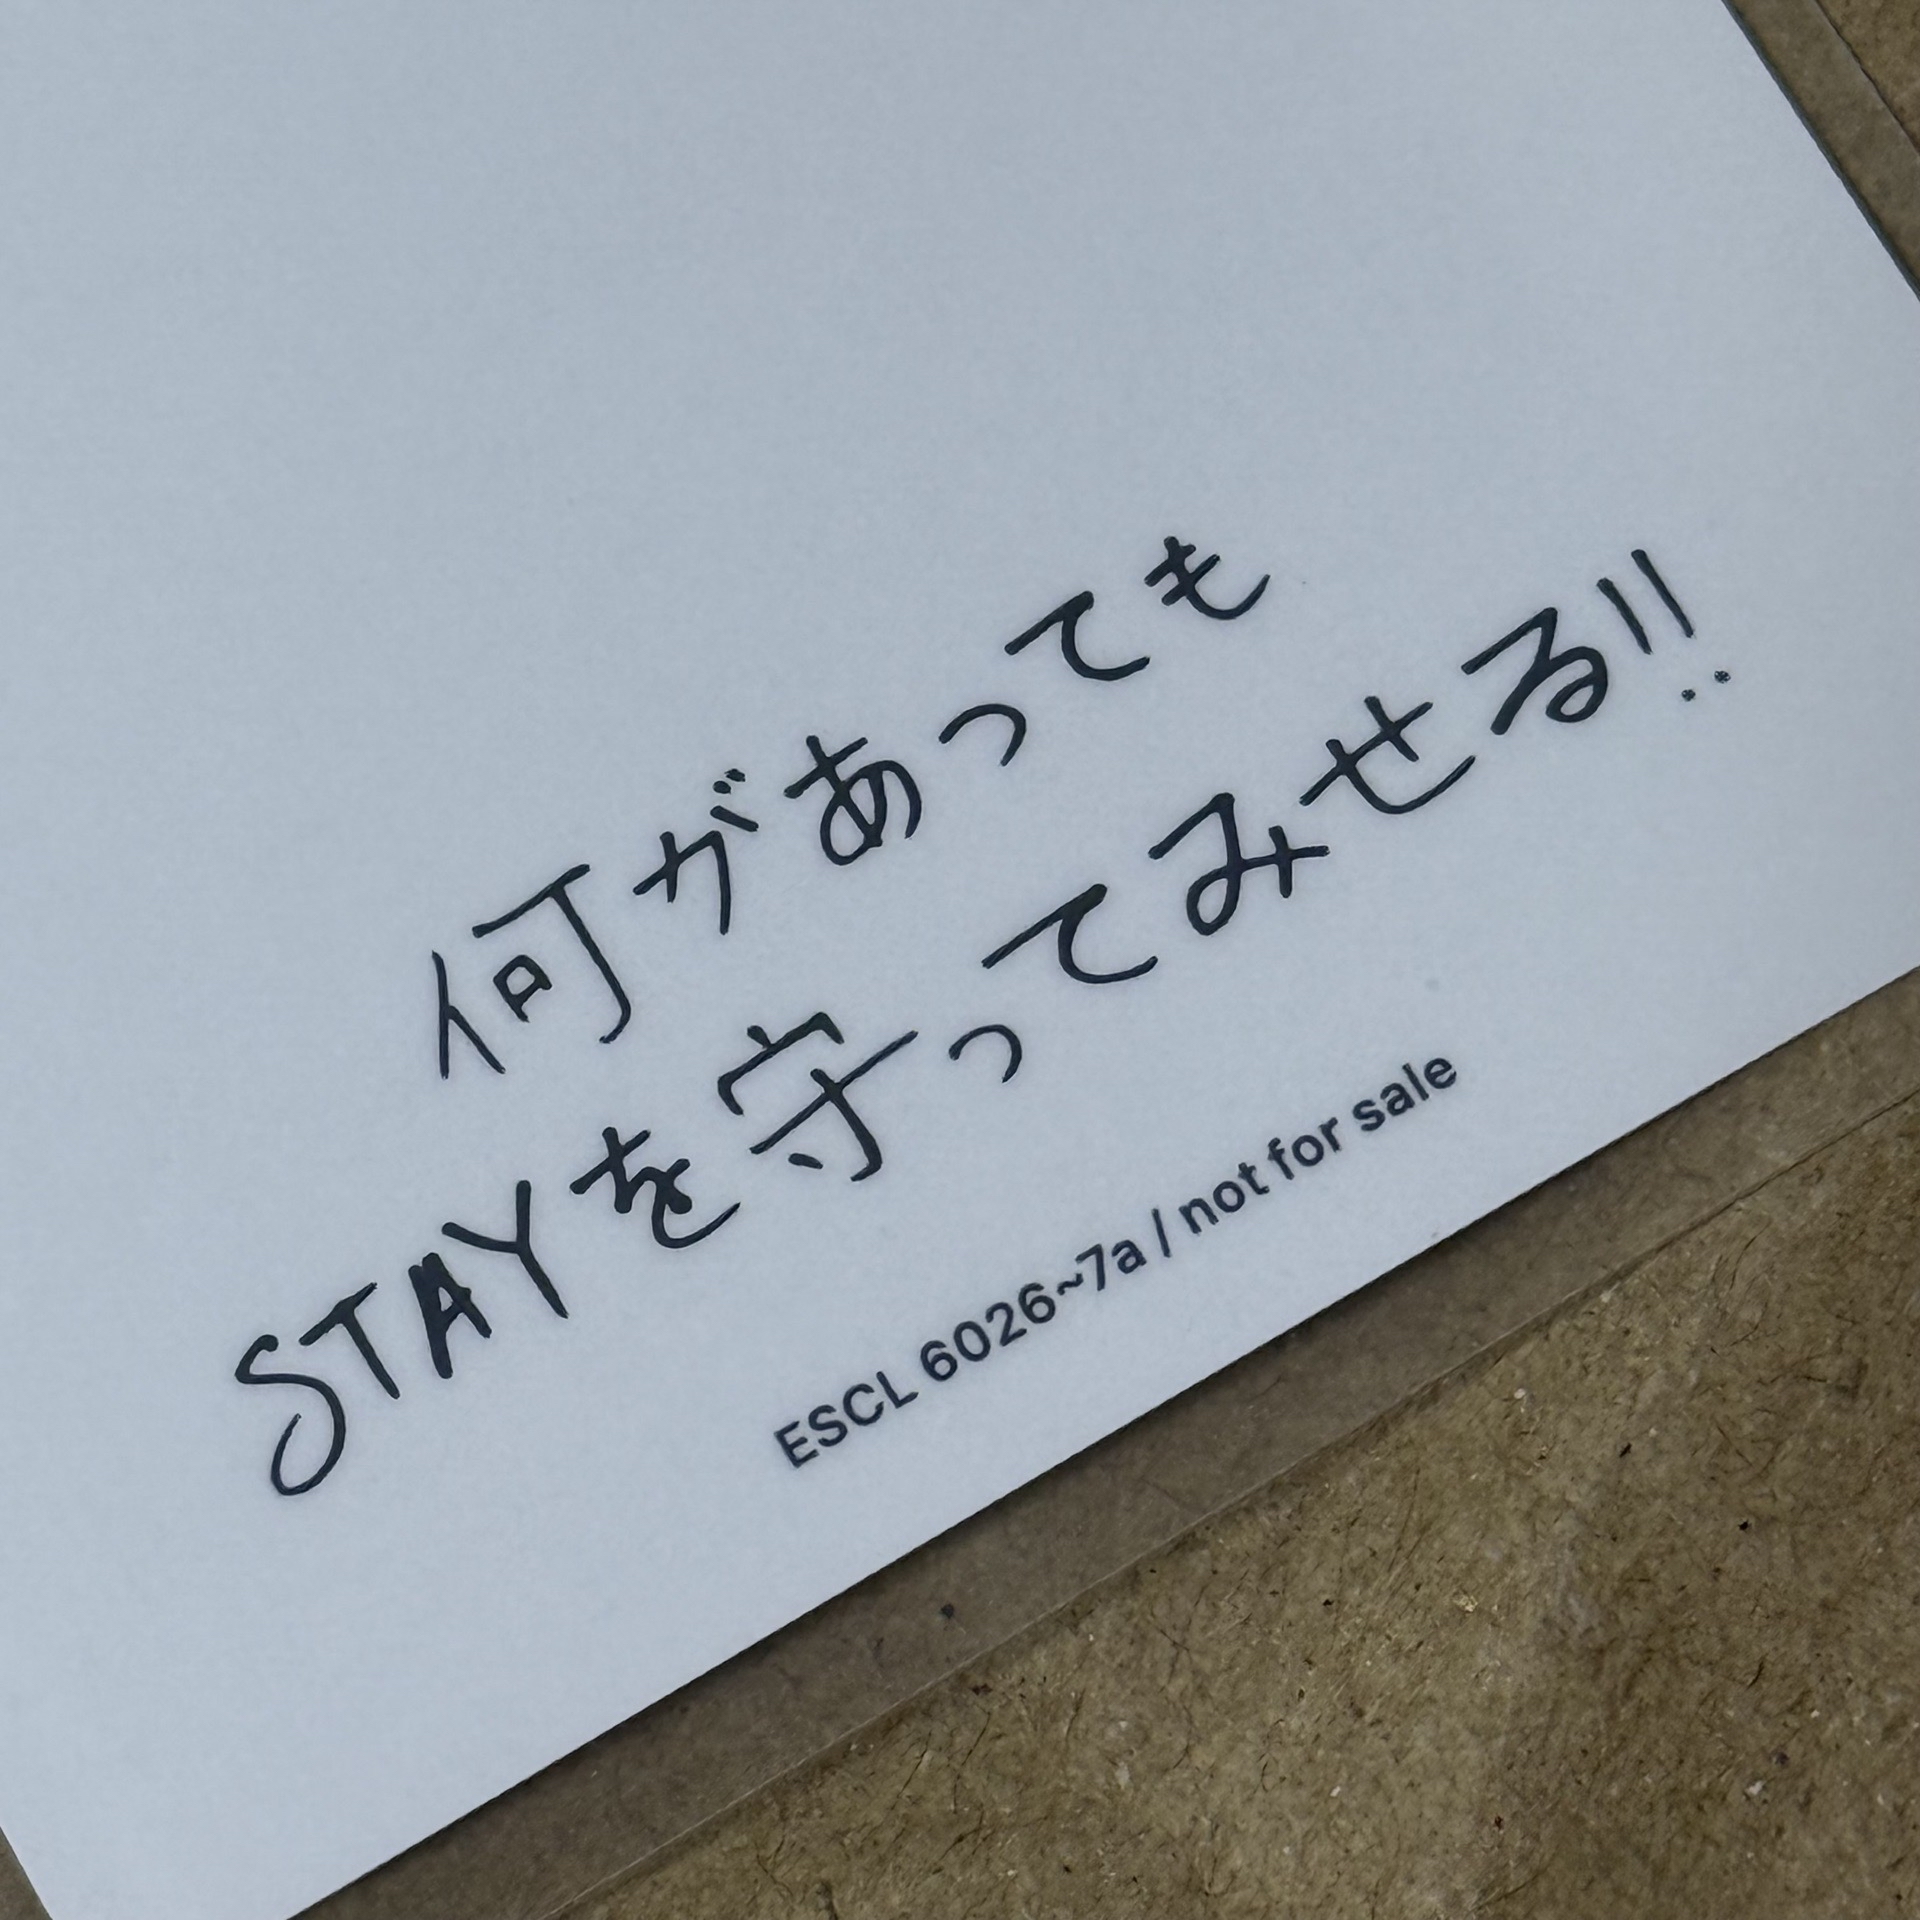 何があっても
STAYを守ってみせる!!
ESCL 6026~7a / not for sale